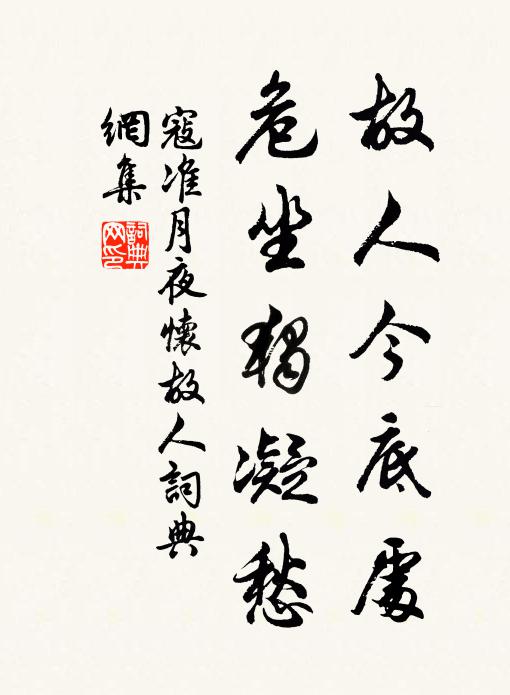 故人今底處
危坐獨凝愁
寇准月夜懷故人詞典
網集
詞典
网印